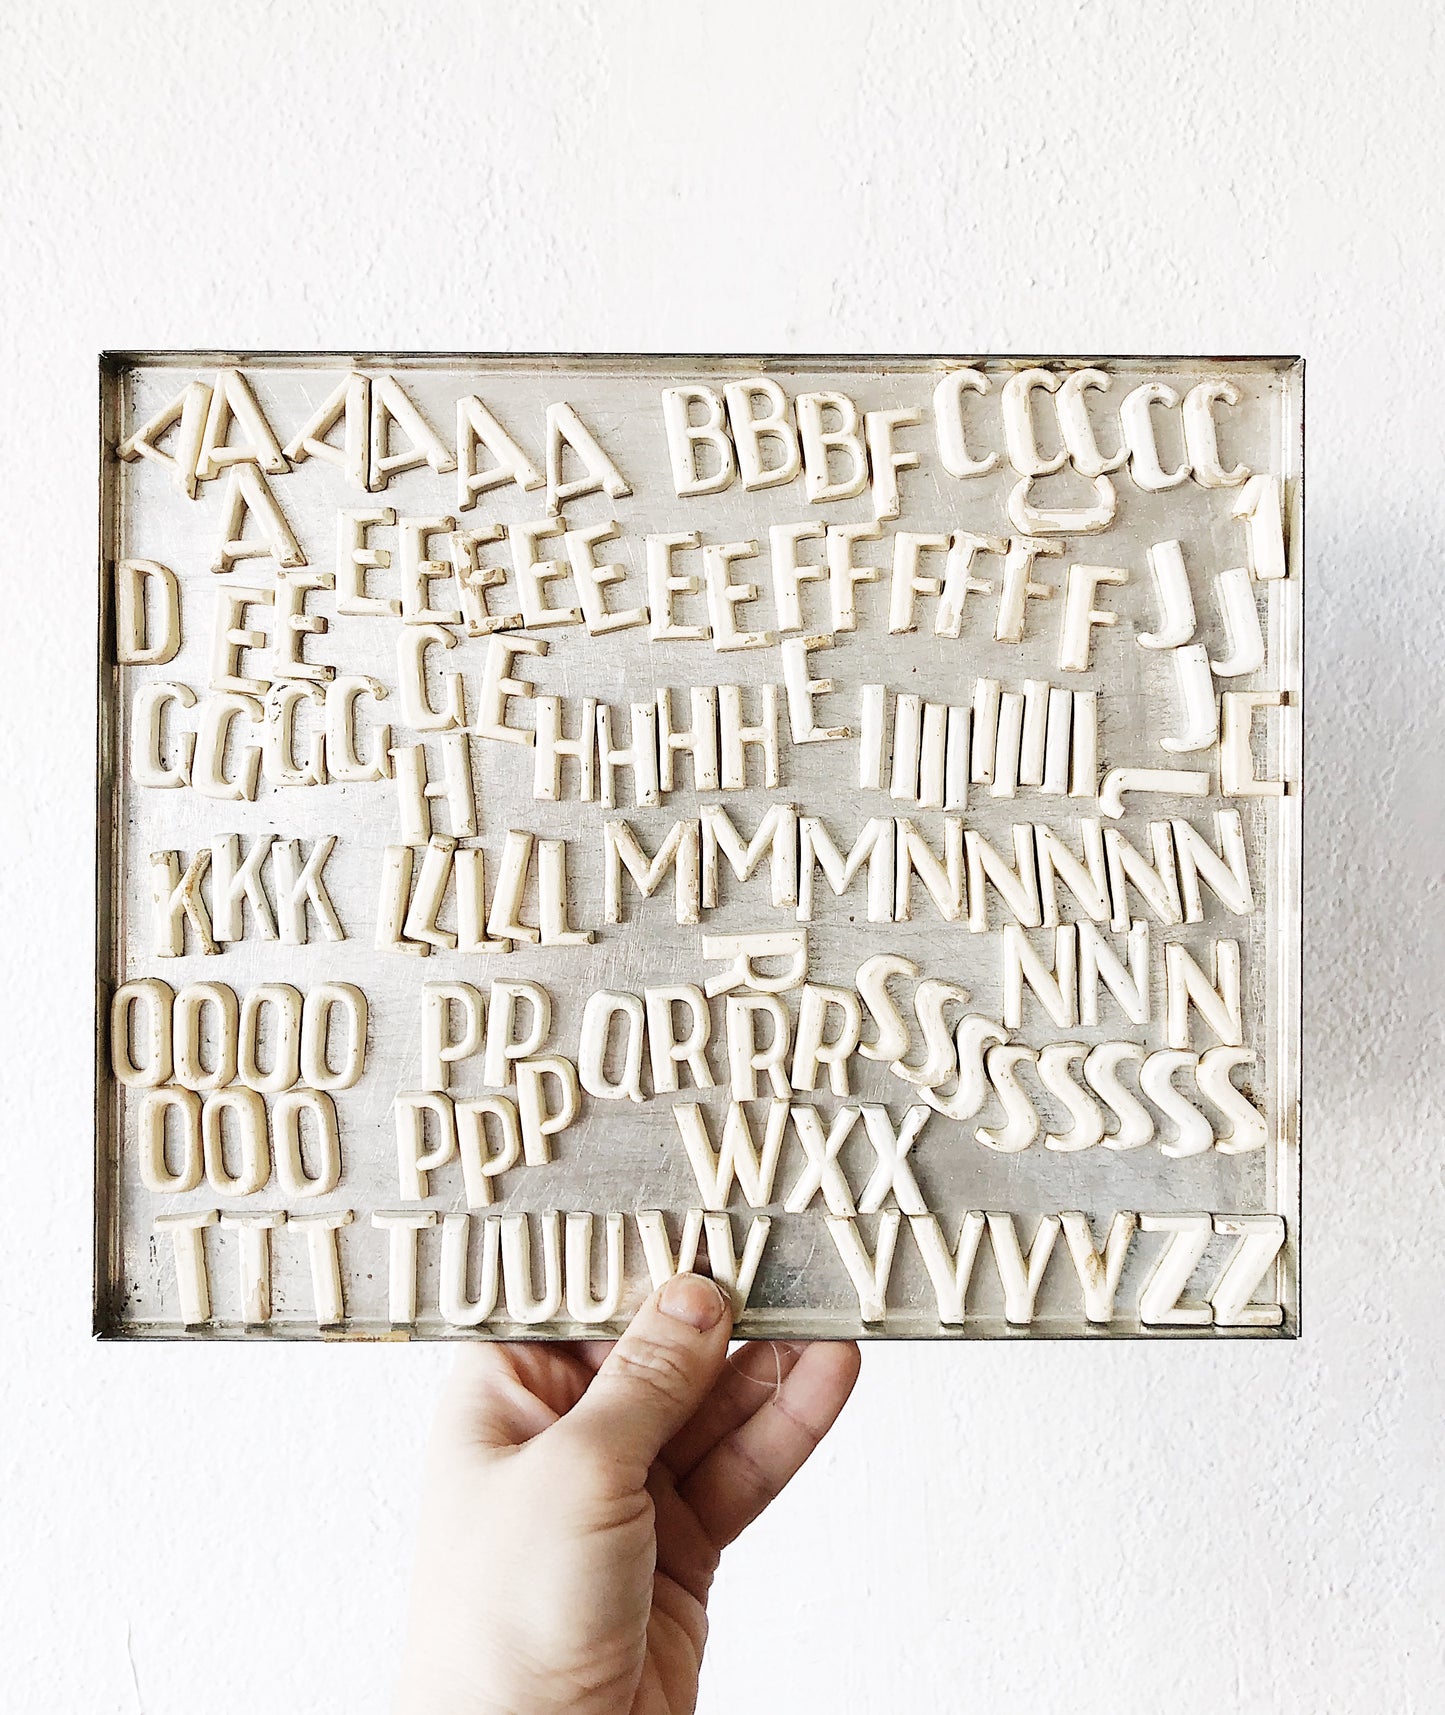 AAAAAABBBFCCCCC
AEEEEEEEFFFFFFFC1
DEEGEEJJJ
GGGGHHHHHIIIIIIIIIJE
KKKLLLLLMMMNNNNN
RNNN
OOOOPPQRRRSSSSSSSS
OOOPPPWXX
TTTTUUUVVYYYYZZ